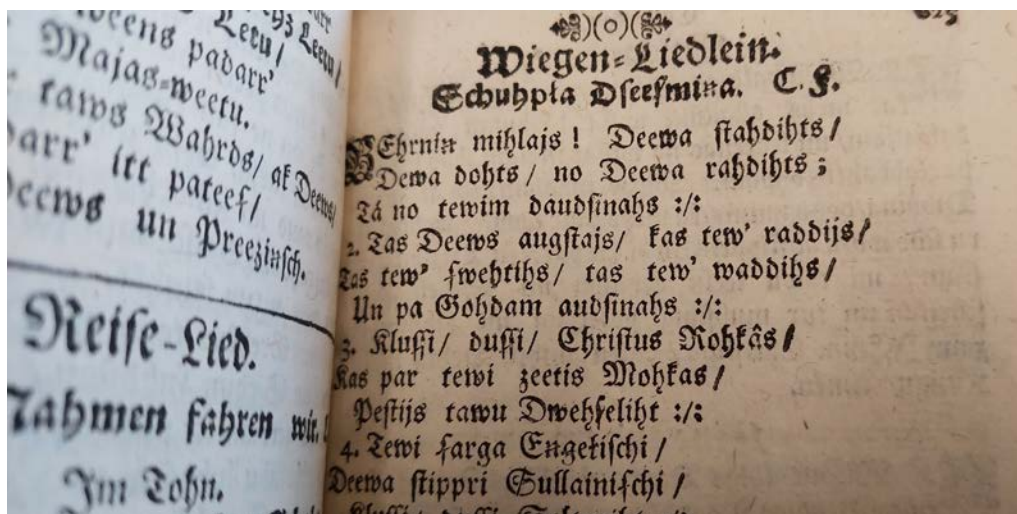 Leetu/
Deens padarr'
Majas-weetu.
taws Wahrds/ ak Deews/
itt pateef/
Deews un Preezinsch.
Reise-Lied.
Nahmen fahren wir.
Jm Tohn.
Wiegen-Liedlein.
Schuhpła Dseesmina. C. F.
BEhrnin mihļajs ! Deewa stahdihts/
Dewa dohts/ no Deewa rahdihts;
Tá no tewim daudsinahs :/:
2. Tas Deews augstajs/ kas tew' raddijs/
Tas tew' swehtihs/ tas tew' waddihs/
Un pa Gohdam audsinahs :/:
3. Klussi/ dussi/ Christus Rohkâs/
Kas par tewi zeetis Mohkas/
Pestijs tawu Dwehseliht :/:
4. Tewi sarga Engełischi/
Deewa stippri Sullainischi/